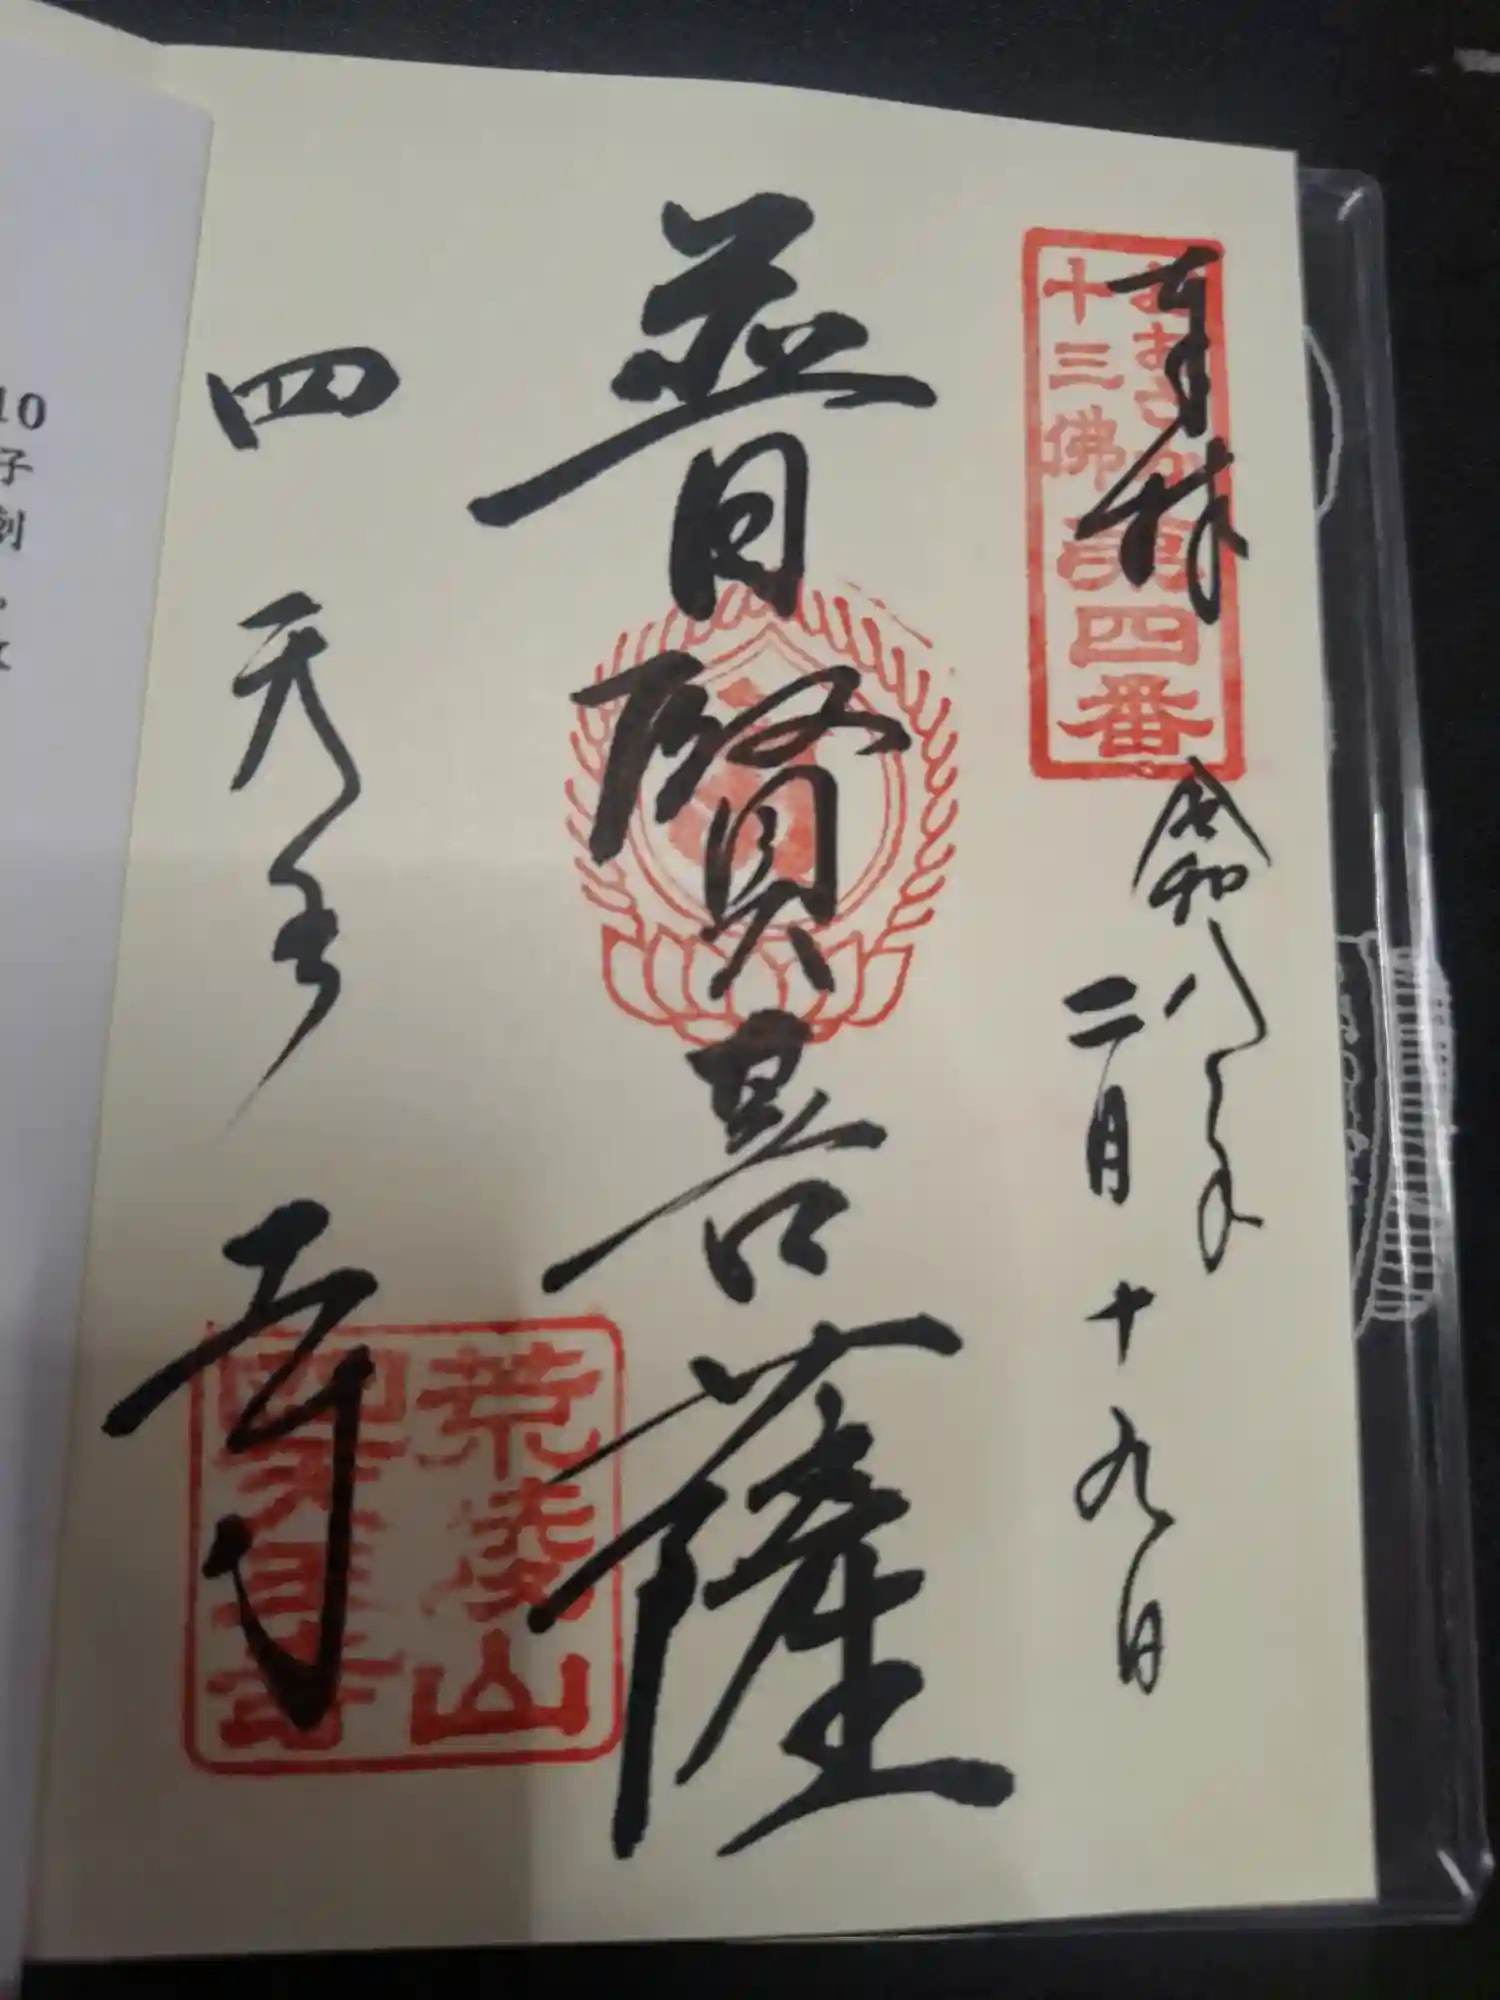 奉拝
おおさか
十三佛
第四番
令和八年
二月十九日
普賢菩薩
荒陵山
四天王寺
四天王寺
10
子
刻